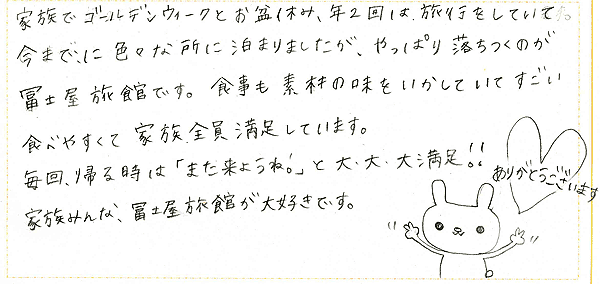 家族でゴールデンウィークとお盆休み、年2回は旅行をしていて。
今までに色々な所に泊まりましたが、やっぱり落ちつくのが
冨士屋旅館です。食事も素材の味をいかしていてすごい
食べやすくて家族全員満足しています。
毎回、帰る時は「また来ようね!」と大・大・大満足!!
家族みんな、冨士屋旅館が大好きです。
ありがとうございます